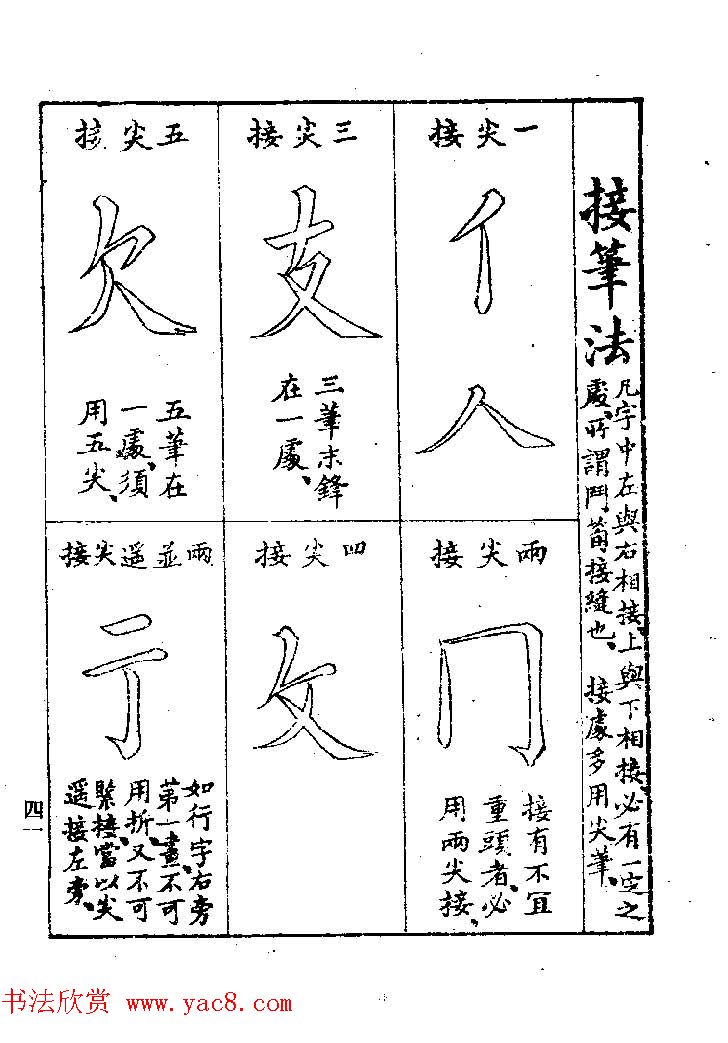 接筆法
凡字中左與右相接、上與下相接、必有一定之
處、所謂鬥筍接縫也、接處多用尖筆、
一尖接
亻
人
兩尖接
冂
接有不冝
重頭者、必
用兩尖接、
三尖接
友
三筆末鋒
在一處、
四尖接
攵
五尖接
欠
五筆在
一處、須
用五尖、
兩並遥尖接
亍
如行字右旁
第一畫不可
用折、又不可
緊接、當以尖
遥接左旁、
四一
书法欣赏 www.yac8.com